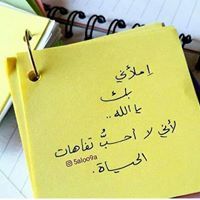 إملأني
بك
يا الله ..
لأني لا أحبُّ تفاهات
5aloo9a
الحياة .